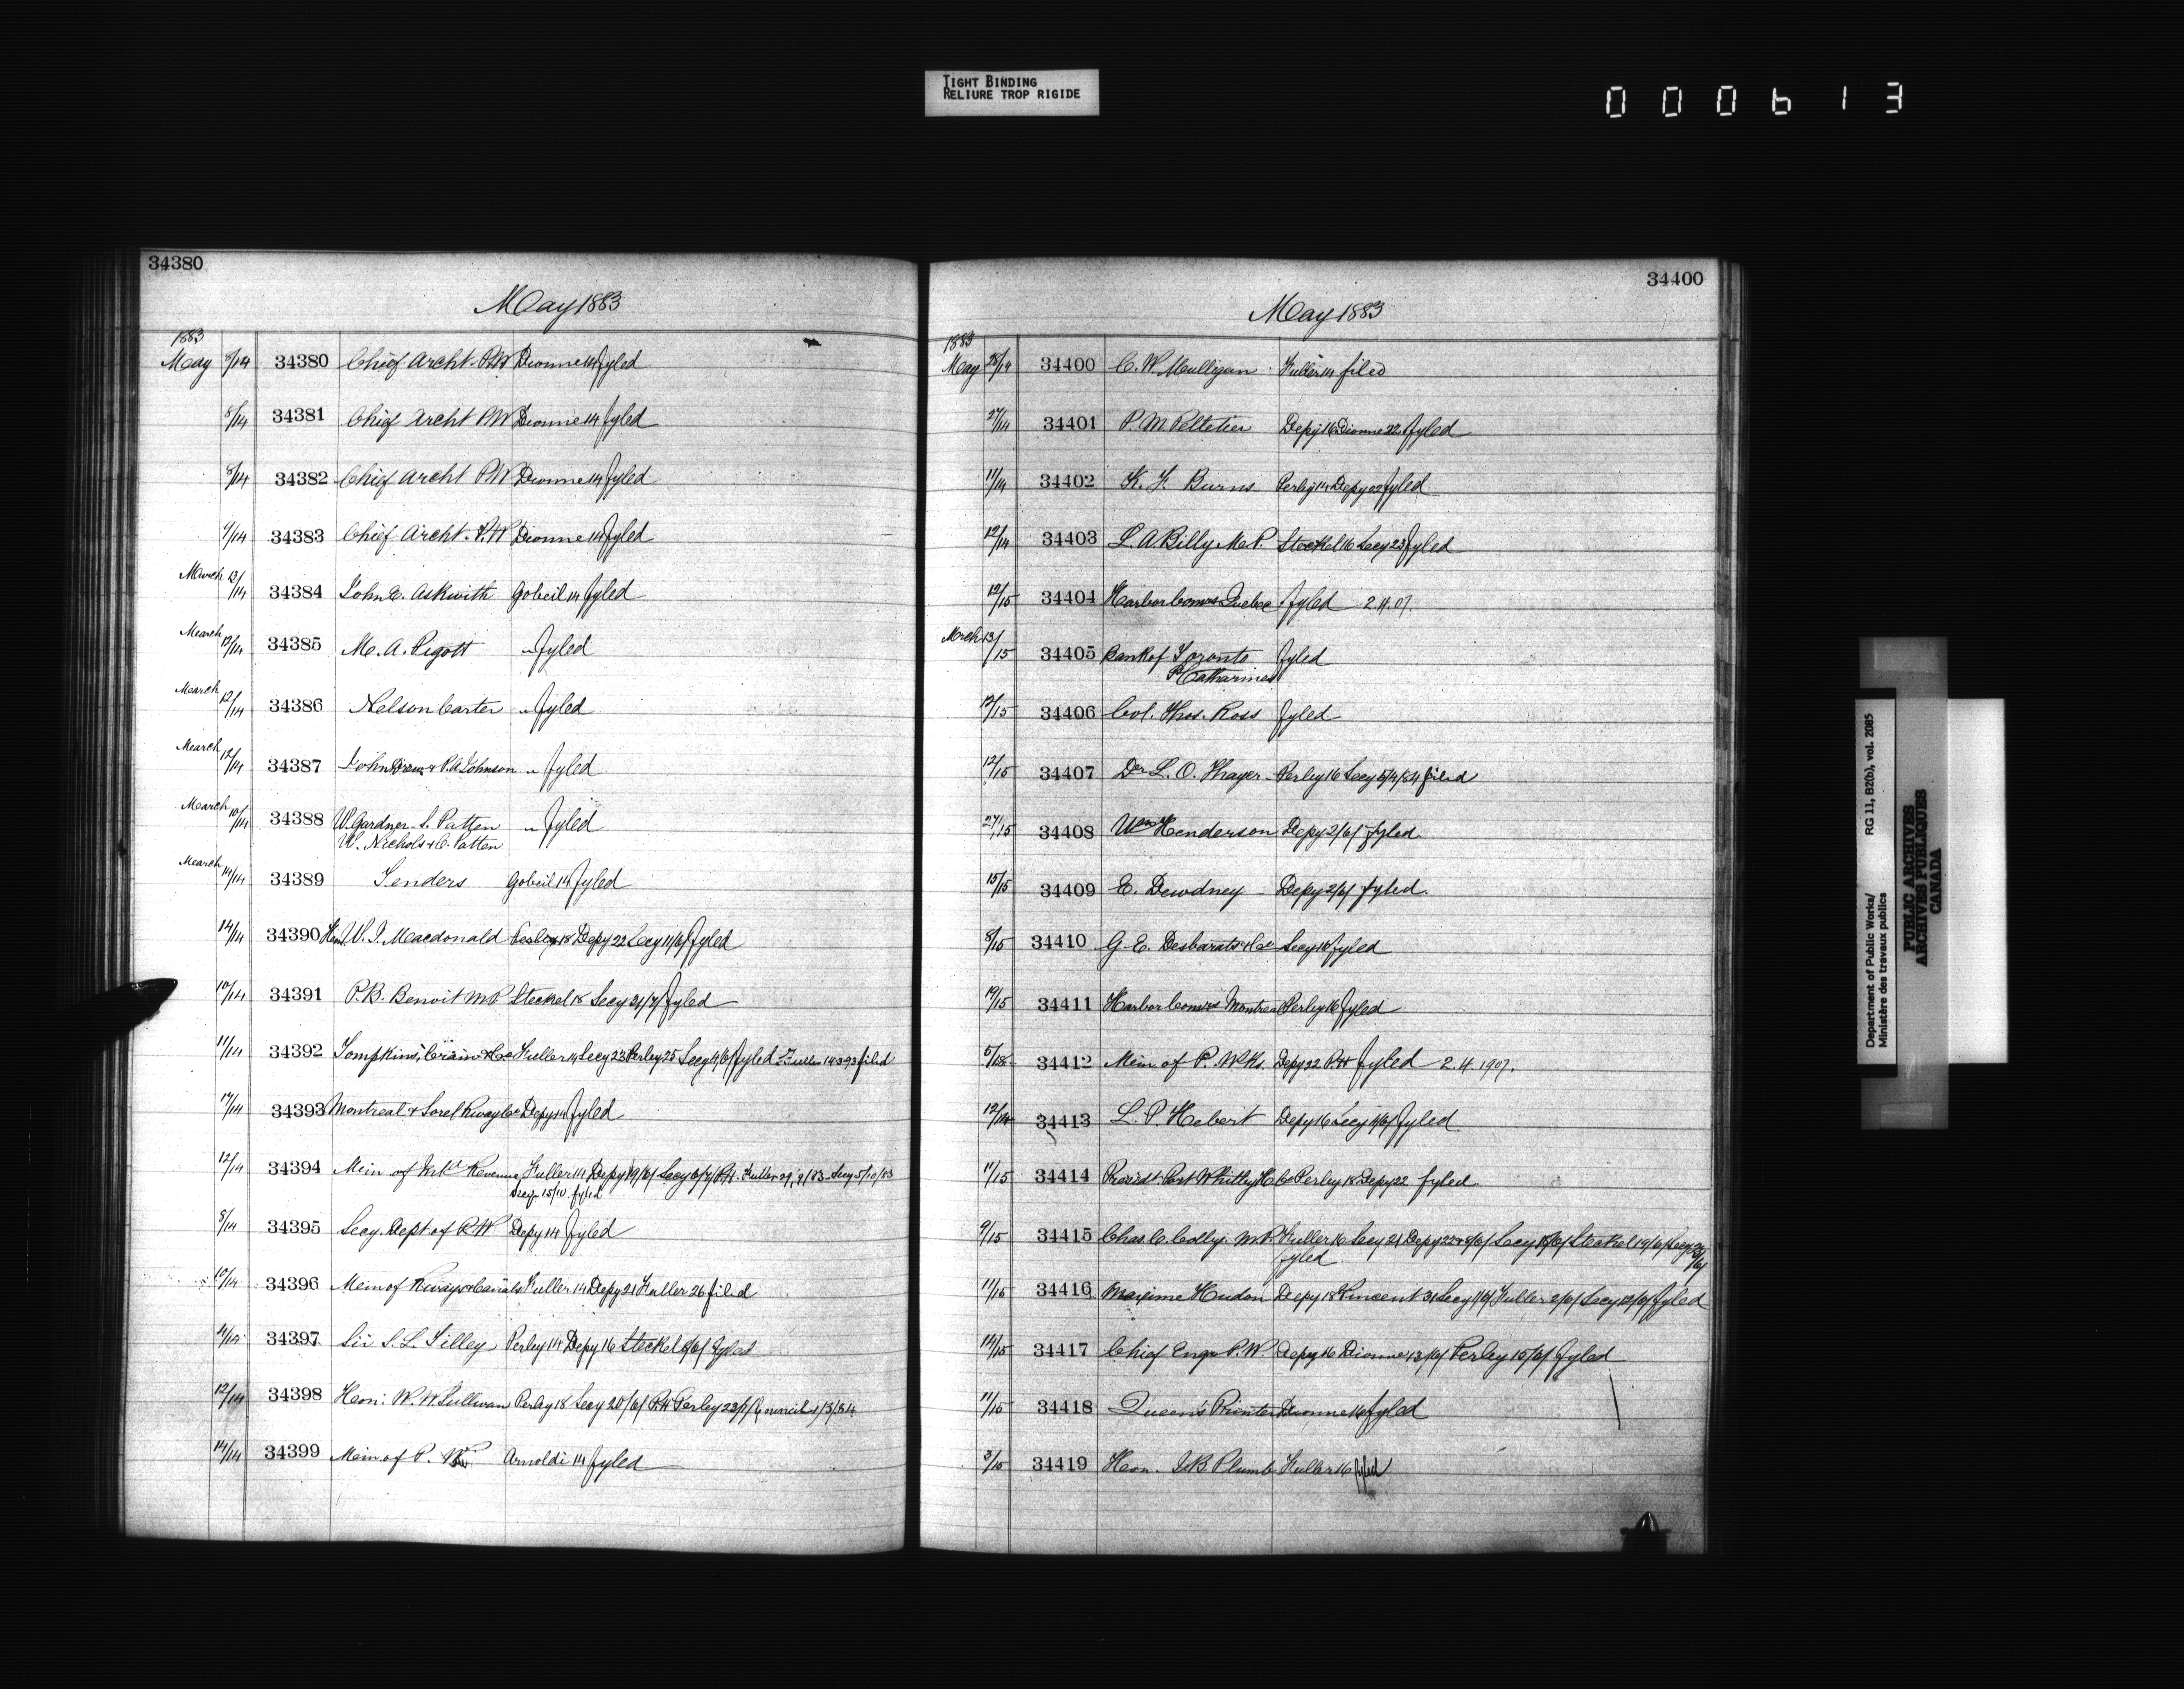 TIGHT BINDING
RELIURE TROP RIGIDE
000613
34380
May 1883
1883
May 8/14 34380 Chief Archt. P.W Dionne 14 fyled
8/14 34381 Chief Archt P.W Dionne 14 fyled
8/14 34382 Chief Archt P.W Dionne 14 fyled
9/14 34383 Chief Archt. P.W Dionne 14 fyled
March 13/14 34384 John E. Askwith Gobeil 14 fyled
March 12/14 34385 M. A. Pigott " fyled
March 12/14 34386 Nelson Carter " fyled
March 12/14 34387 John Drew & P.A Johnson " fyled
March 10/14 34388 W. Gardner - S. Patten " fyled
W. Nichols & C. Patten
March 14/14 34389 Tenders Gobeil 14 fyled
14/14 34390 Hon. W. J. Macdonald Perley 18 Depy 22 Secy 11/6/ fyled
10/14 34391 P. B. Benoit M.P. Steckel 18 Secy 31/7/ fyled
11/14 34392 Tompkins, Crain & Co Fuller 14 Secy 23 Perley 25 Secy 4/6/ fyled Fuller 14393 filed
34393 Montreal & Sorel Rway Co Depy 14 fyled
12/14 34394 Min of Inld Revenue Fuller 14 Depy 19/6/ Secy 6/7/ P.H. Fuller 29/9/83 - Secy 5/10/83
Secy 15/10 fyled
8/14 34395 Secy. Dept of R.W Depy 14 fyled
10/14 34396 Min of Rways & Canals Fuller 14 Depy 21 Fuller 26 filed
34397 Sir S. L. Tilley Perley 14 Depy 16 Steckel 6/6/ fyled
12/14 34398 Hon: W. W. Sullivan Perley 18 Secy 20/6/ P.H Perley 23/7/ Council 1/3/84
14/14 34399 Min of P. Arnoldi 14 fyled
34400
May 1883
1883
May 28/14 34400 C. W. Mulligan Fuller 14 filed
34401 P. M. Pelletier Depy 16 Dionne 22 fyled
11/14 34402 K. F. Burns Perley 14 Depy 22 fyled
12/14 34403 L. A Billy M.P. Steckel 16 Secy 23 fyled
12/15 34404 Harbor Comrs Quebec fyled 2.4.07.
March 13/15 34405 Bank of Toronto fyled
St Catharines
12/15 34406 Col. Thos. Ross fyled
12/15 34407 Dr L. O. Thayer Perley 16 Secy 5/4/84 filed
27/15 34408 Wm Henderson Depy 2/6/ fyled
15/15 34409 E. Dewdney Depy 2/6/ fyled.
8/15 34410 G. E. Desbarats & Co Secy 16 fyled
34411 Harbor Comrs Montreal Perley 16 fyled
34412 Min. of P. Wks. Depy 22 P.H fyled 2.4.1907.
34413 L. P. Hebert Depy 16 Secy 4/6/ fyled
11/15 34414 Presidt Port Whitby H Co Perley 18 Depy 22 fyled
9/15 34415 Chas. C. Colby. M.P. Fuller 16 Secy 21 Depy 22 & 8/6/ Secy Steckel 19/6/ Secy
fyled
11/15 34416 Maxime Hudon Depy 18 Vincent 31 Secy 1/6/ Fuller 2/6/ Secy 12/6/ fyled
14/15 34417 Chief Engr P.W. Depy 16 Dionne 13/6/ Perley 15/6/ fyled
11/15 34418 Queen's Printer Dionne 16 fyled
3/15 34419 Hon. J B. Plumb Fuller 16 fyled
Department of Public Works/ RG 11, B2(b), vol. 2085
Ministère des travaux publics
PUBLIC ARCHIVES
ARCHIVES PUBLIQUES
CANADA